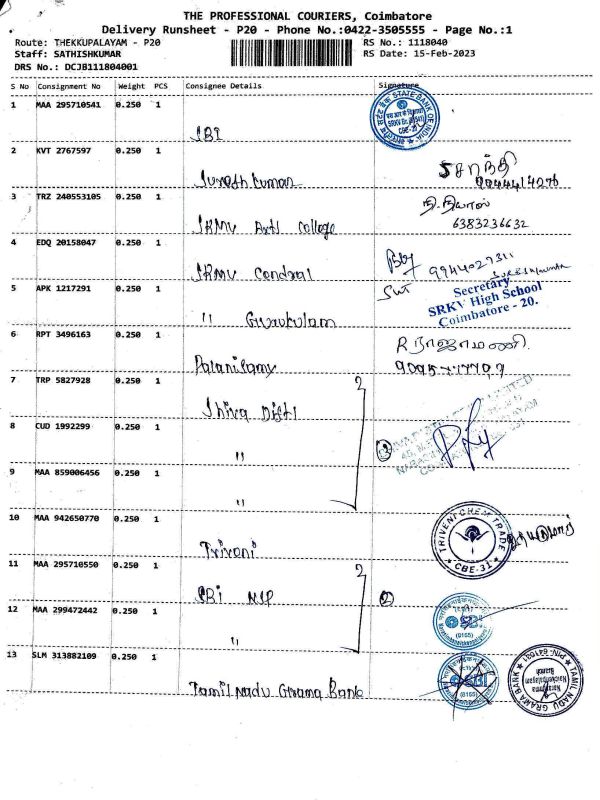 THE PROFESSIONAL COURIERS, Coimbatore
Delivery Runsheet - P20 - Phone No.:0422-3505555 - Page No.:1
Route: THEKKUPALAYAM - P20
RS No.: 1118040
Staff: SATHISHKUMAR
RS Date: 15-Feb-2023
DRS No.: DCJB111804001
S No Consignment No Weight PCS Consignee Details Signature
1 MAA 295710541 0.250 1
SBI
STATE BANK OF INDIA
SRKV Br.
CBE-20
2 KVT 2767597 0.250 1
Suresh Kumar
3 TRZ 240553105 0.250 1
SRMV Arts College
6383236632
4 EDQ 20158047 0.250 1
SRMV Central
9944027311
5 APK 1217291 0.250 1
" Gurukulam
Secretary
SRKV High School
Coimbatore - 20.
6 RPT 3496163 0.250 1
Palanisamy
R ராஜாமணி.
7 TRP 5827928 0.250 1
Shiva Disti
8 CUD 1992299 0.250 1
"
9 MAA 859006456 0.250 1
"
10 MAA 942650770 0.250 1
Triveni
TRIVENI CHEM TRADE
CBE-31
11 MAA 295710550 0.250 1
SBI NSP
2
12 MAA 299472442 0.250 1
"
SBI
13 SLM 313882109 0.250 1
Tamil Nadu Grama Bank
SBI
TAMIL NADU GRAMA BANK
PIN: 641031
Narasimma
Naickenpalayam
Branch